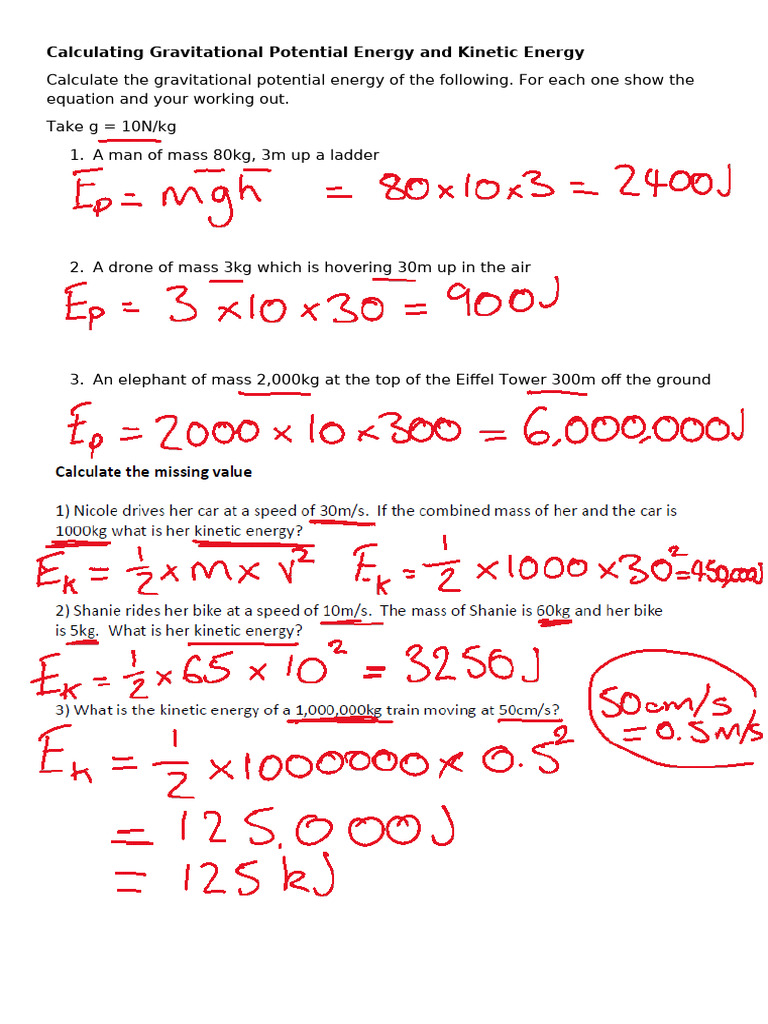 Calculating Gravitational Potential Energy and Kinetic Energy
Calculate the gravitational potential energy of the following. For each one show the
equation and your working out.
Take g = 10N/kg
1. A man of mass 80kg, 3m up a ladder
Ep = mgh = 80×10×3 = 2400J
2. A drone of mass 3kg which is hovering 30m up in the air
Ep = 3 ×10×30 = 900J
3. An elephant of mass 2,000kg at the top of the Eiffel Tower 300m off the ground
Ep = 2000 × 10 ×300 = 6,000,000J
Calculate the missing value
1) Nicole drives her car at a speed of 30m/s. If the combined mass of her and the car is
1000kg what is her kinetic energy?
Ek = 1/2 × m × v² Ek = 1/2 ×1000 ×30² =450,000J
2) Shanie rides her bike at a speed of 10m/s. The mass of Shanie is 60kg and her bike
is 5kg. What is her kinetic energy?
Ek = 1/2 × 65 × 10² = 3250J
3) What is the kinetic energy of a 1,000,000kg train moving at 50cm/s?
50cm/s
= 0.5m/s
Ek = 1/2 ×1000000 × 0.5²
= 125,000J
= 125 kJ